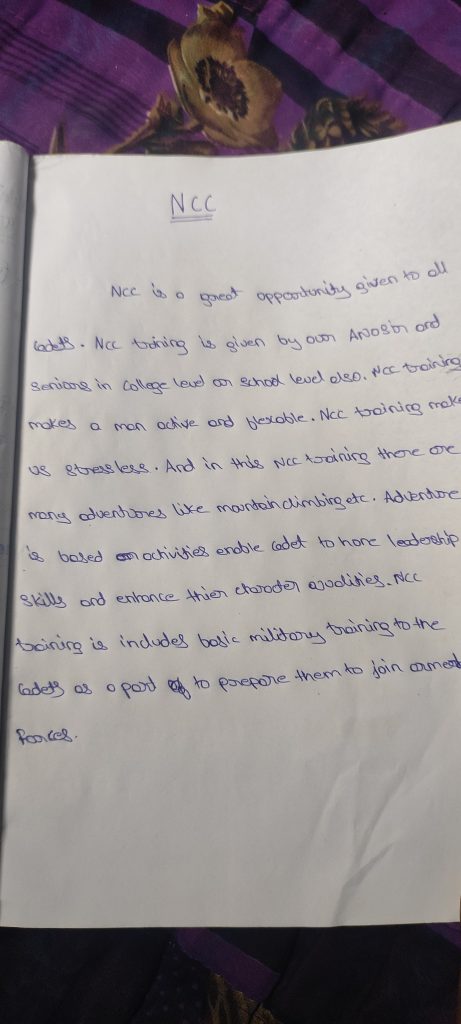 NCC
NCC is a great opportunity given to all
Cadets. NCC training is given by our and
Seniors in college level or school level also. NCC training
makes a man active and flexable. NCC training make
us stressless. And in this NCC training there are
many adventures like mountain climbing etc. Adventure
is based on activities enable Cadet to hone leadership
skills and enhance thier character quality. NCC
training is includes basic military training to the
Cadets as a part to prepare them to join armed
forces.